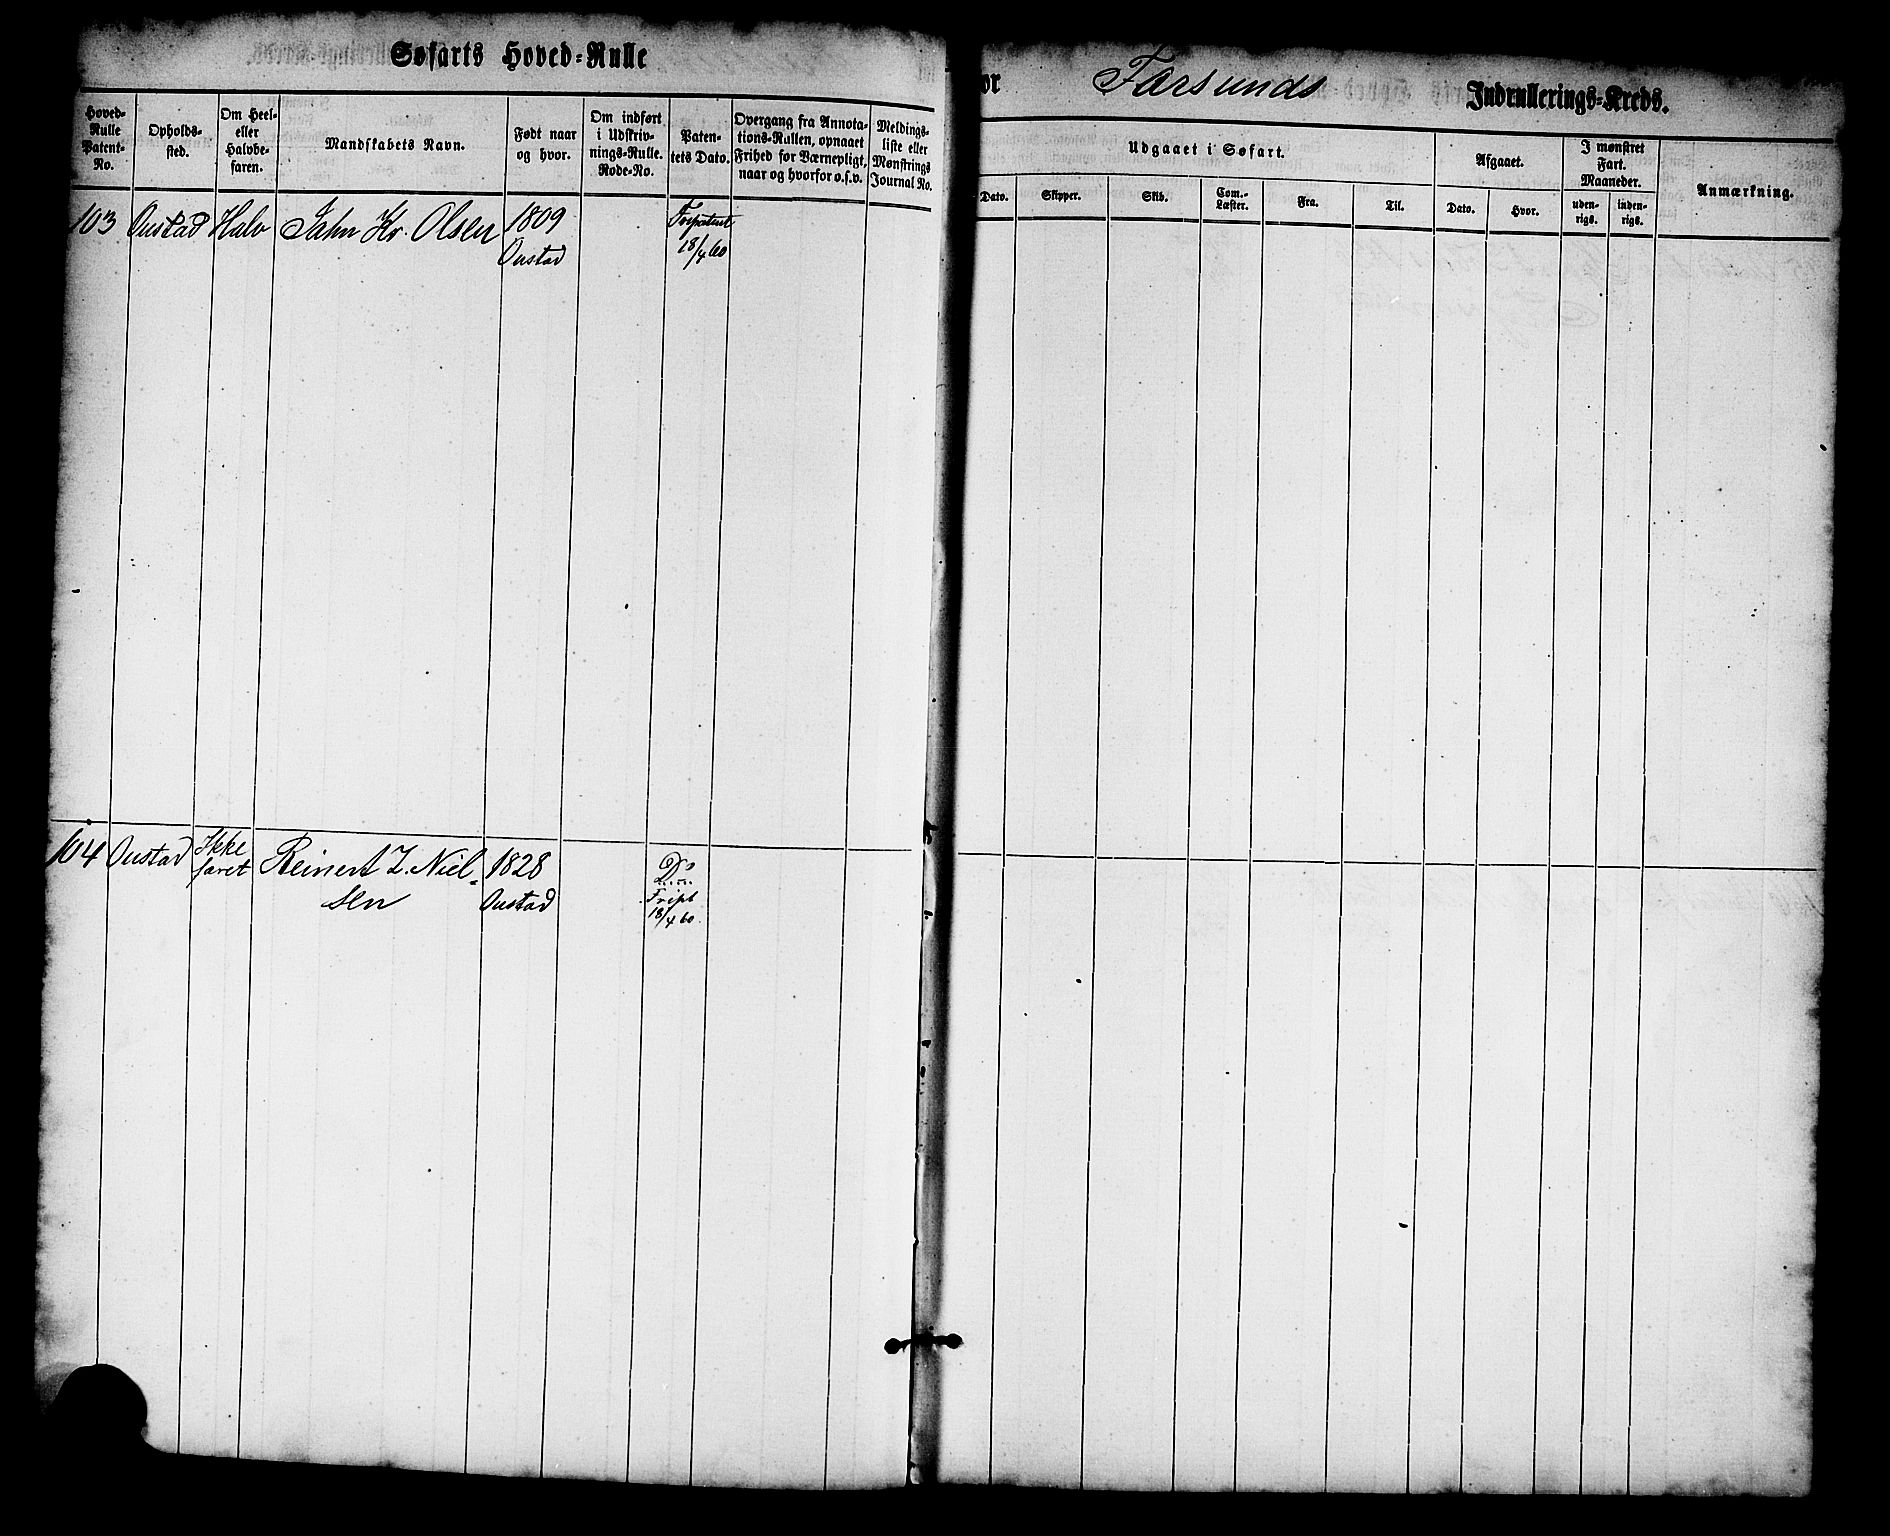 Søfarts Hoved-Rulle
Hoved-
Rulle
Patent-
No.
Opholds-
sted.
Om Heel-
eller
Halvbe-
faren.
Mandskabets Navn.
Født naar
og hvor.
Om indført
i Udskriv-
nings-Rulle.
Rode-No.
Paten-
tets Dato.
Overgang fra Annota-
tions-Rullen, opnaaet
Frihed for Værnepligt,
naar og hvorfor o.s.v.
Meldings-
liste eller
Mønstrings
Journal No.
103 Oustad Halv Jahn Kr. Olsen 1809
Oustad
18/4 60
104 Oustad Ikke
faret
Reinert Z. Niel-
sen
1828
Oustad
Do
Fript
18/4 60.
or Farsunds Indrullerings-Kreds.
Udgaaet i Søfart.
Dato. Skipper. Skib. Com.-
Læster. Fra. Til.
Afgaaet.
Dato. Hvor.
I mønstret
Fart.
Maaneder.
uden-
rigs.
inden-
rigs.
Anmærkning.